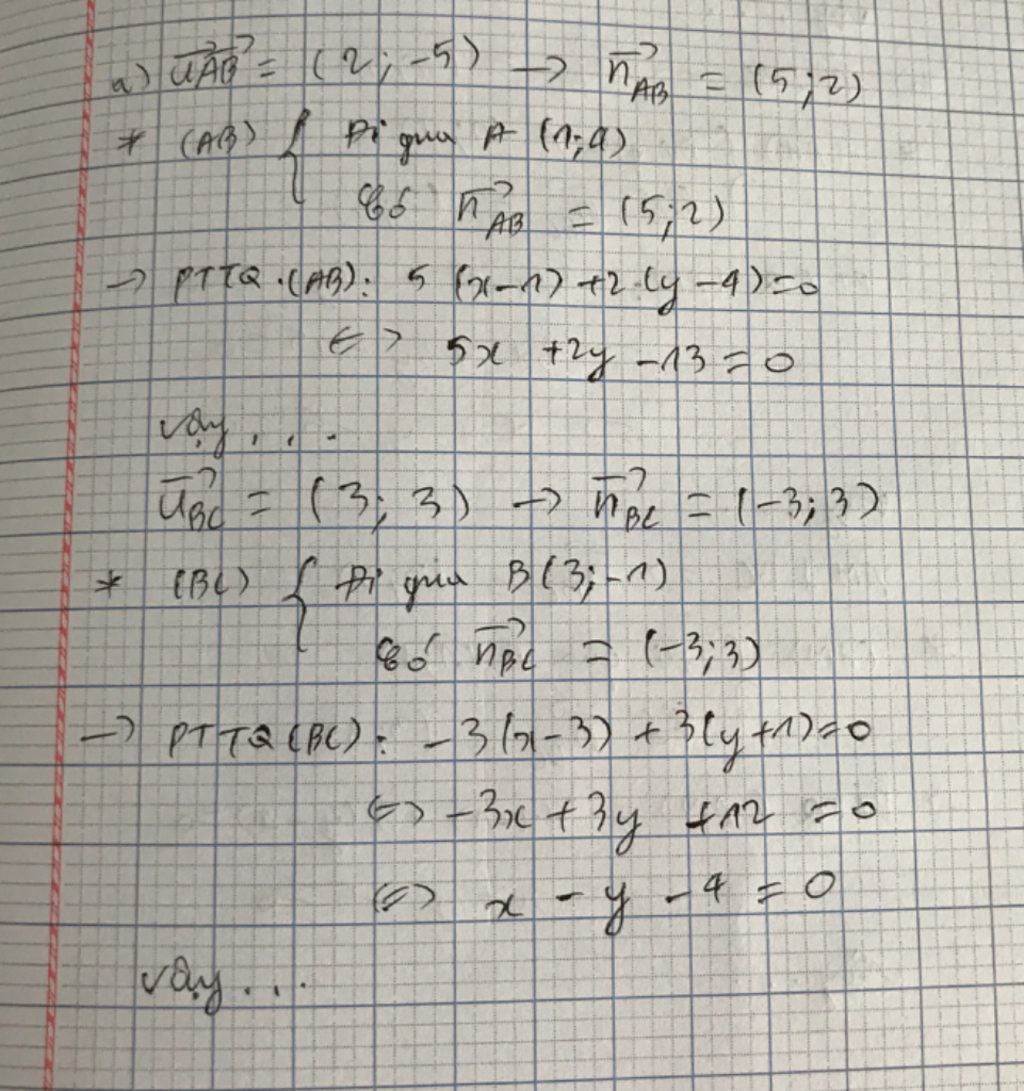 a) \overrightarrow{u_{AB}} = (2; -5) → \overrightarrow{n_{AB}} = (5; 2)
* (AB) { Đi qua A (1; 4)
Có \overrightarrow{n_{AB}} = (5; 2)
→ PTTQ (AB): 5 (x-1) + 2 (y-4) = 0
<=> 5x + 2y - 13 = 0
vậy ....
\overrightarrow{u_{BC}} = (3; 3) → \overrightarrow{n_{BC}} = (-3; 3)
* (BC) { Đi qua B (3; -1)
Có \overrightarrow{n_{BC}} = (-3; 3)
→ PTTQ (BC): -3(x-3) + 3(y+1) = 0
<=> -3x + 3y + 12 = 0
<=> x - y - 4 = 0
vậy ...